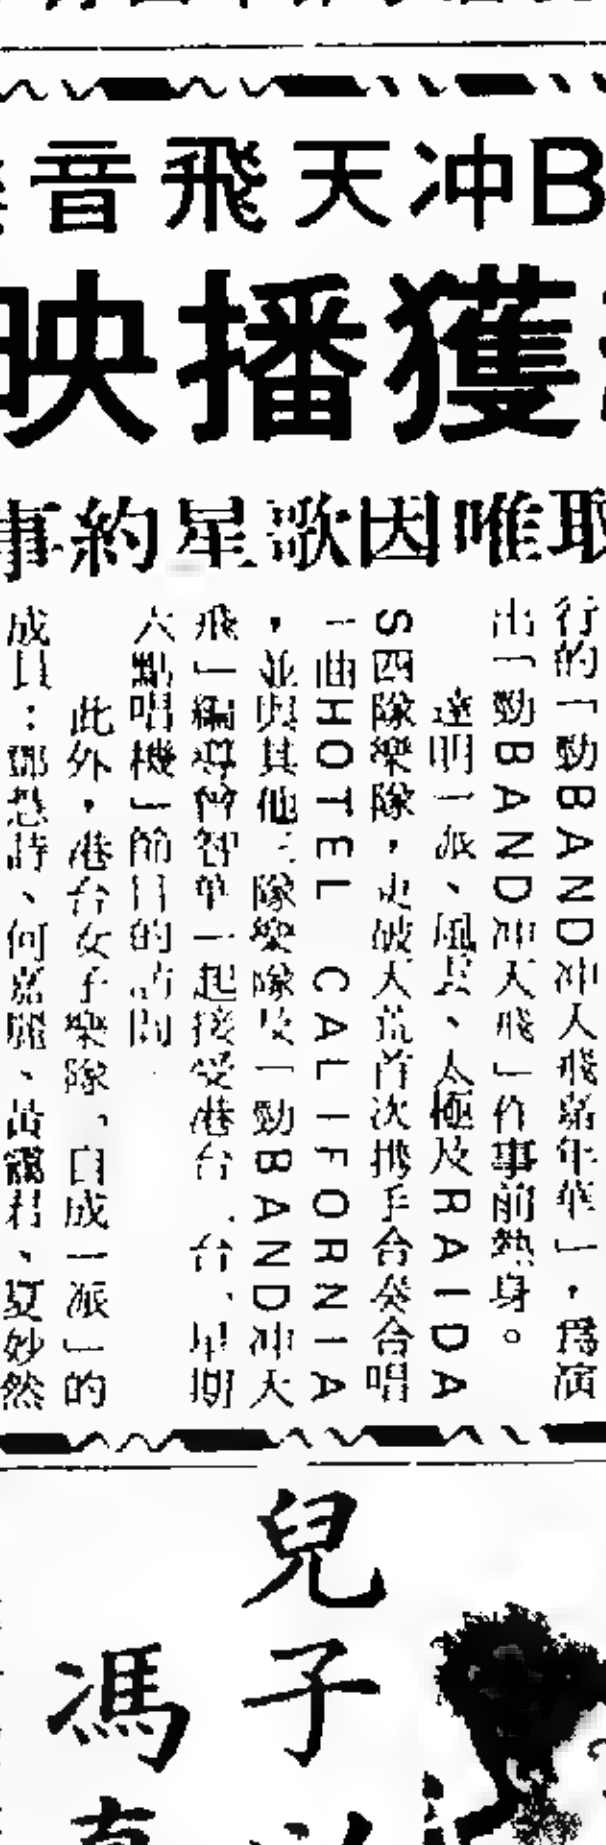 B冲天飛音
獲播映
唯因歌星約事
行的「勁BAND冲天飛嘉年華」，爲演
出「勁BAND冲天飛」作事前熱身。
達明一派、風雲、太極及RAIDA
S四隊樂隊，更破天荒首次携手合奏合唱
一曲HOTEL CALIFORNIA
，並與其他三隊樂隊及「勁BAND冲天
飛」編導曾智華一起接受港台 台、星期
六點唱機」節目的訪問
此外，港台女子樂隊、自成一派」的
成員：鄧 詩、何嘉麗、黃靄君、夏妙然
兒子
馮